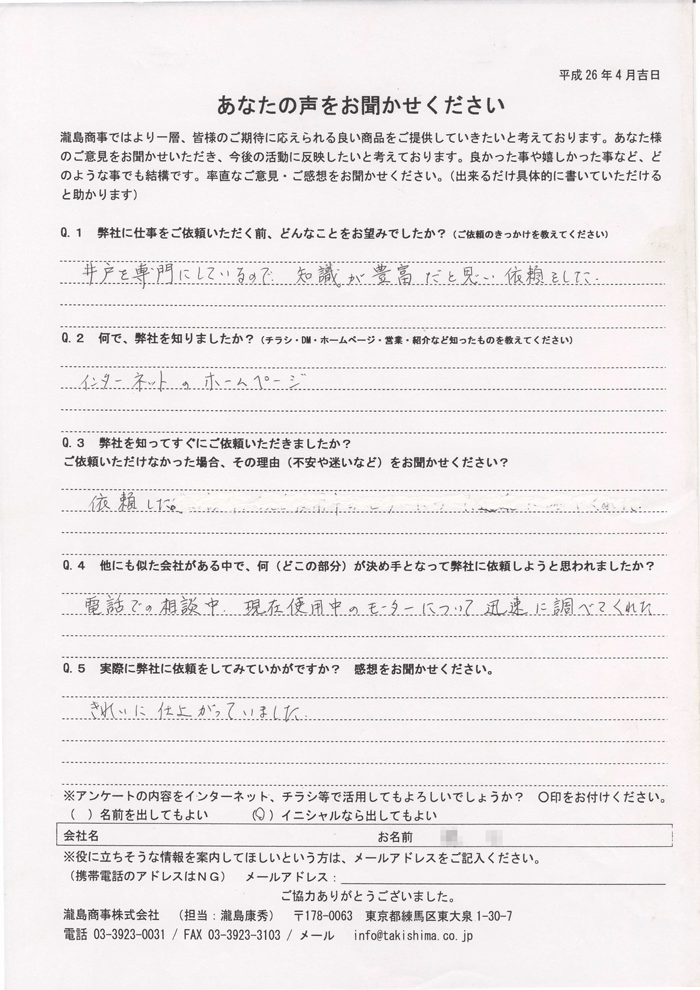 平成26年4月吉日
あなたの声をお聞かせください
瀧島商事ではより一層、皆様のご期待に応えられる良い商品をご提供していきたいと考えております。あなた様
のご意見をお聞かせいただき、今後の活動に反映したいと考えております。良かった事や嬉しかった事など、ど
のような事でも結構です。率直なご意見・ご感想をお聞かせください。（出来るだけ具体的に書いていただける
と助かります）
Q.1 弊社に仕事をご依頼いただく前、どんなことをお望みでしたか？（ご依頼のきっかけを教えてください）
井戸を専門にしているので、知識が豊富だと思い依頼をした.
Q.2 何で、弊社を知りましたか？（チラシ・DM・ホームページ・営業・紹介など知ったものを教えてください）
インターネットのホームページ
Q.3 弊社を知ってすぐにご依頼いただきましたか？
ご依頼いただけなかった場合、その理由（不安や迷いなど）をお聞かせください？
依頼した。
Q.4 他にも似た会社がある中で、何（どこの部分）が決め手となって弊社に依頼しようと思われましたか？
電話での相談中、現在使用中のモーターについて迅速に調べてくれた
Q.5 実際に弊社に依頼をしてみていかがですか？ 感想をお聞かせください。
きれいに仕上がっていました.
※アンケートの内容をインターネット、チラシ等で活用してもよろしいでしょうか？ ○印をお付けください。
（ ）名前を出してもよい （○）イニシャルなら出してもよい
会社名 お名前
※役に立ちそうな情報を案内してほしいという方は、メールアドレスをご記入ください。
（携帯電話のアドレスはＮＧ） メールアドレス：
ご協力ありがとうございました。
瀧島商事株式会社 （担当：瀧島康秀） 〒178-0063 東京都練馬区東大泉 1-30-7
電話 03-3923-0031 / FAX 03-3923-3103 / メール info@takishima.co.jp